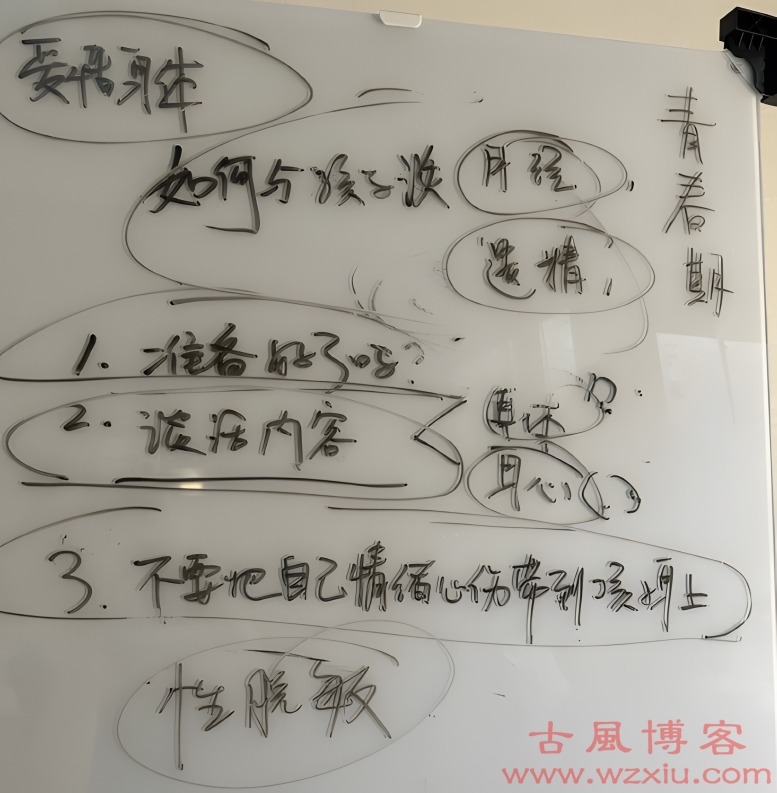 爱惜身体
青春期
如何与孩子谈 月经
遗精
1. 准备好了吗?
2. 谈话内容
具体
身心
3. 不要把自己情绪心伤带到孩子身上
性脱敏
古風博客
www.wzxiu.com